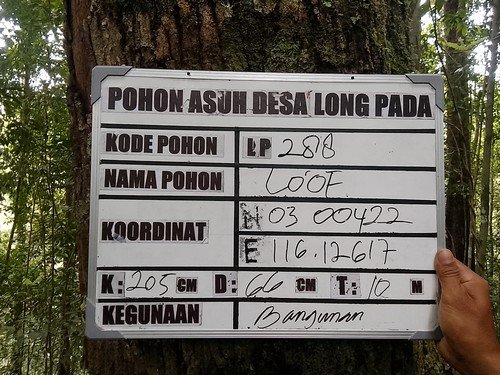 POHON ASUH DESA LONG PADA
KODE POHON LP 288
NAMA POHON LOOF
KOORDINAT N 03 00422
E 116.12617
K: 205 CM D: 66 CM T: 10 M
KEGUNAAN Bangunan